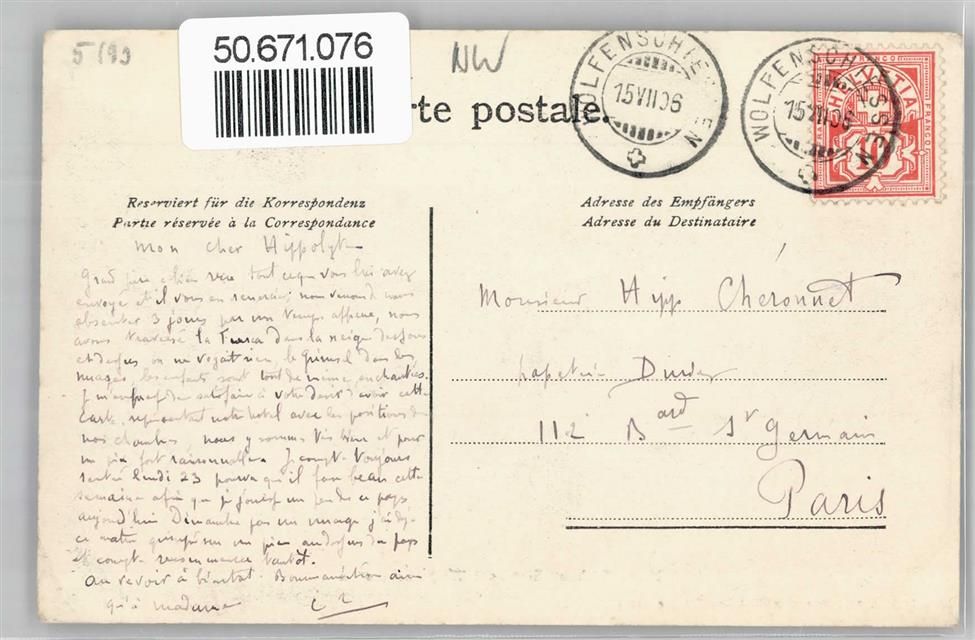 5/93
50.671.076
NW
rte postale.
WOLFENSCHIESSEN
15 VII 06
WOLFENSCHIESSEN
15 VII 06
HELVETIA
FRANCO
10
Reserviert für die Korrespondenz
Partie réservée à la Correspondance
Adresse des Empfängers
Adresse du Destinataire
Mon cher Hippolyte
Grand père a bien reçu tout ce que vous lui avez
envoyé et il vous en remercie, nous venons de nous
absenter 3 jours par un temps affreux, nous
avons traversé la Furca dans la neige dessous
et dessus on ne voyait rien, le Grimsel dans les
nuages, les enfants sont tout de même enchantées.
satisfaire à votre désir d'avoir cette
carte représentant notre hotel avec les positions de
nos chambres, nous y sommes très bien et pour
un prix fort raisonnable. Je compte toujours
rentrer lundi 23 pourvu qu'il fasse beau cette
semaine afin que je jouisse un peu de ce pays
aujourd'hui Dimanche pas un nuage j'ai déjà
ce matin grimpé sur un pic au dessus du pays
et compte recommencer tantôt.
au revoir à bientot. Bonne ainsi
qu'à madame
Monsieur Hipp Cheronnet
papeterie
112 Bard St Germain
Paris